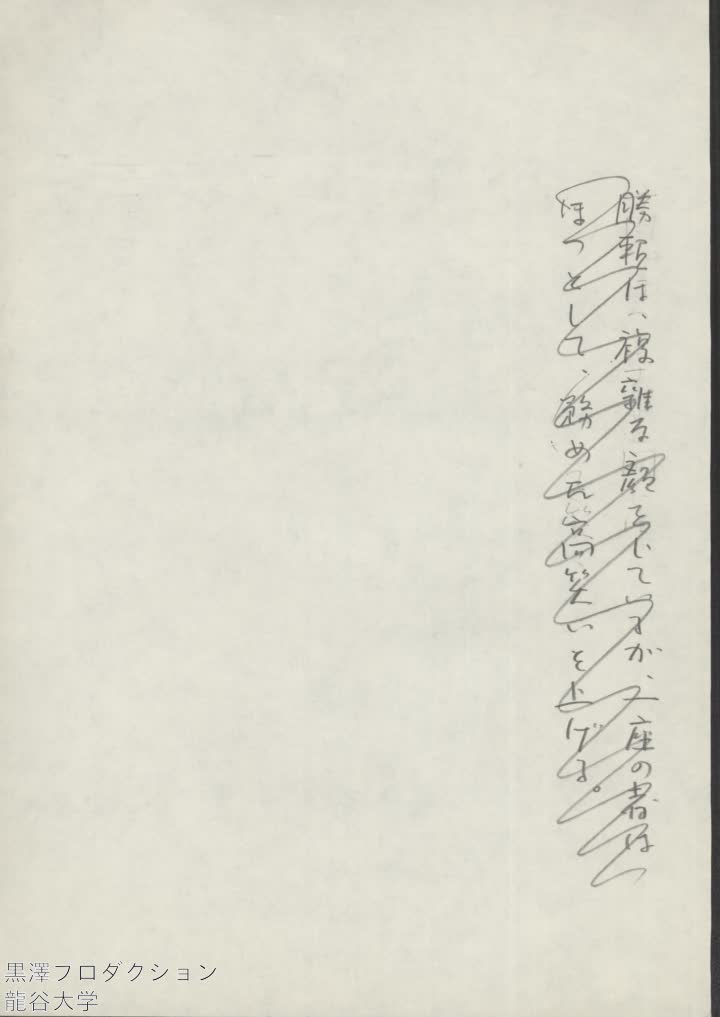 勝頼は、複雑な顔をしているが、一座の者は
ほっとして、務めて高笑いを上げる。
黒澤フロダクション
龍谷大学